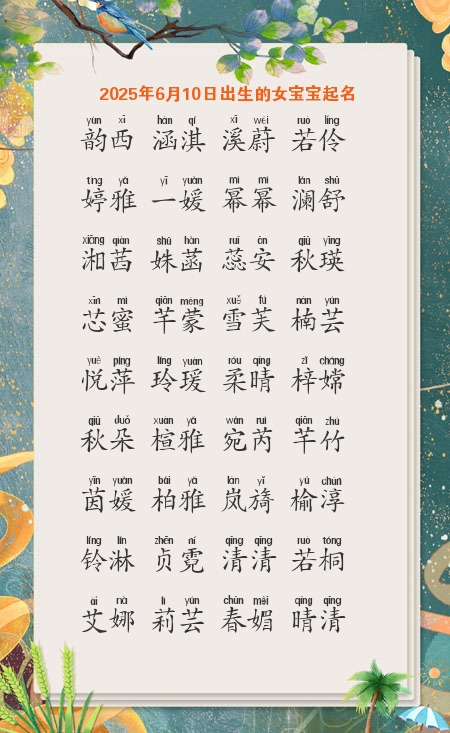 2025年6月10日出生的女宝宝起名
yùn xī hán qí xī wèi ruò líng
韵西 涵淇 溪蔚 若伶
tíng yǎ yī yuàn mì mì lán shū
婷雅 一媛 幂幂 澜舒
xiāng qiàn shū hàn ruǐ ān qiū yīng
湘茜 姝菡 蕊安 秋瑛
xīn mì qiān méng xuě fú nán yún
芯蜜 芊蒙 雪芙 楠芸
yuè píng líng yuàn róu qíng zǐ cháng
悦萍 玲瑗 柔晴 梓嫦
qiū duǒ xuān yǎ wǎn ruì qiān zhú
秋朵 楦雅 宛芮 芊竹
yīn yuàn bǎi yǎ lán yǐ yú chún
茵媛 柏雅 岚旖 榆淳
líng lín zhēn ní qīng qīng ruò tóng
铃淋 贞霓 清清 若桐
ài nà lì yún chūn mèi qíng qīng
艾娜 莉芸 春媚 晴清